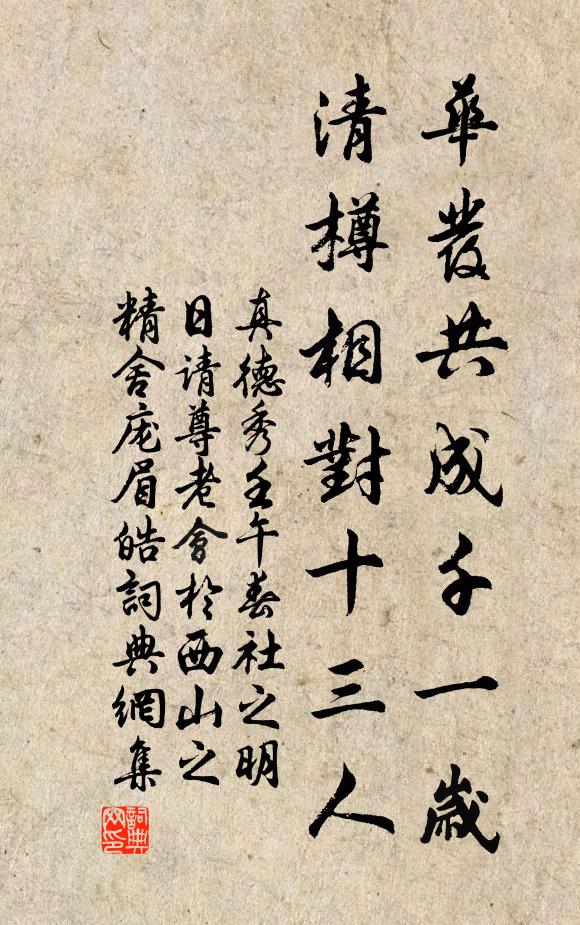 華發共成千一歲
清樽相對十三人
真德秀壬午春社之明
日请尊老會於西山之
精舍庞眉皓詞典網集
詞典网印